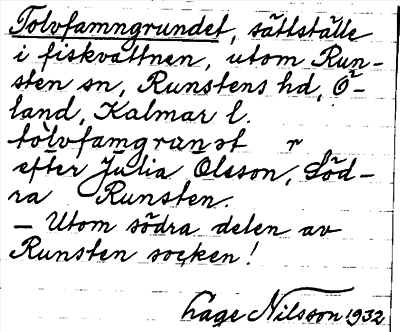 Tolvfamngrundet, sättställe
i fiskvattnen, utom Run-
sten sn, Runstens hd, Ö-
land, Kalmar l.
tolvfamgranst r
efter Julia Olsson, Söd-
ra Runsten.
— Utom södra delen av
Runsten socken!
Lage Nilsson 1932